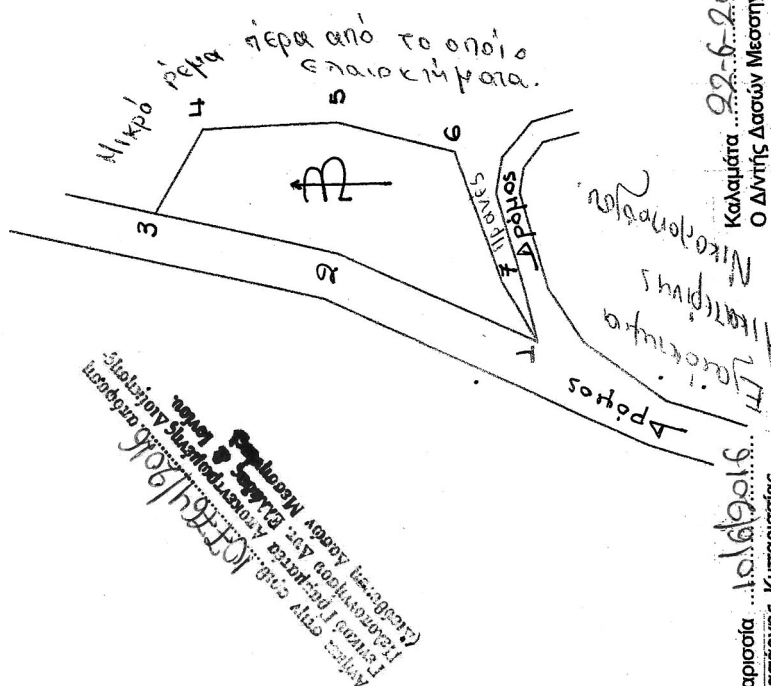 Μικρό ρέμα πέρα από το οποίο
ελαιοκτήματα.
4
5
6
3
2
7
1
Πρανές
Δρόμος
Δρόμος
Ελαιόκτημα
Αικατερίνης
Νικολοπούλου.
Καλαμάτα 22-6-20
Ο Δ/ντής Δασών Μεσσην
αρισσία 10/6/2016
Κυπαρισσίας
Ανήκει στην αριθ. 107764/2016 απόφαση
Γενικού Γραμματέα Αποκεντρωμένης Διοίκησης
Πελοποννήσου Δυτ. Ελλάδας & Ιονίου.
(Διεύθυνση Δασών Μεσσηνίας)